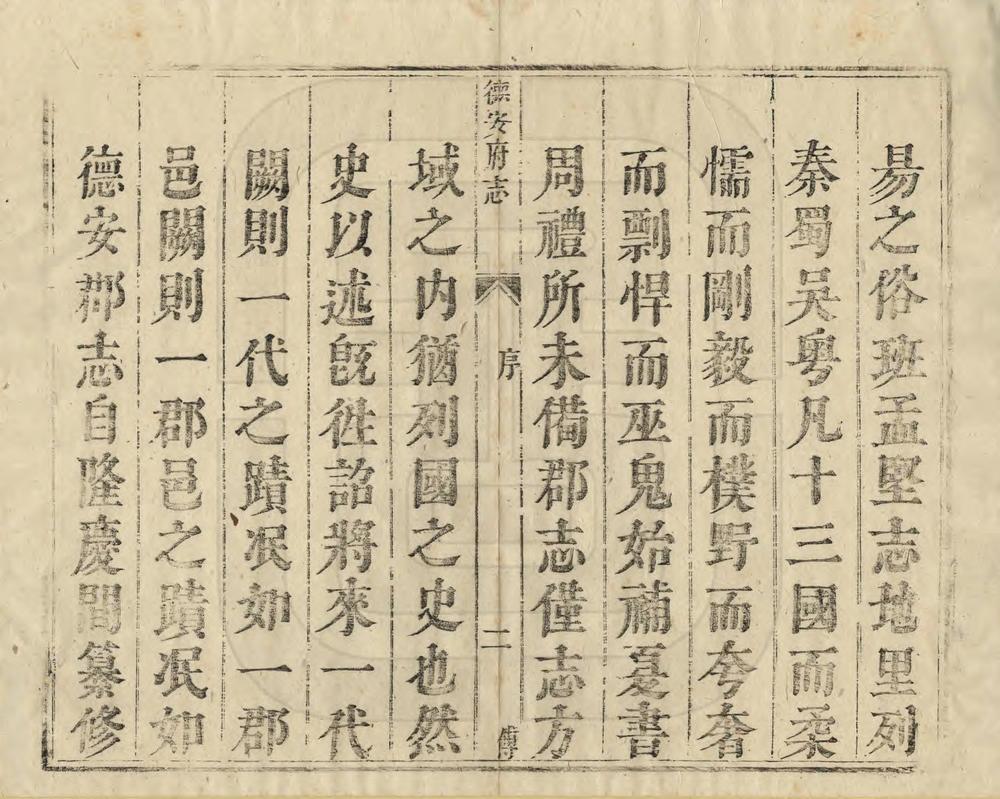 昜之俗班孟堅志地里列
秦蜀吳粤凡十三國而柔
懦而剛毅而樸野而夸奢
而剽悍而巫鬼始補憂書
周禮所未備郡志僅志方
德安府志
序
二
域之內猶列國之史也然
史以述旣徃詔將來一代
闕則一代之蹟泯如一郡
邑闕則一郡邑之蹟泯如
德安郡志自隆慶間纂修